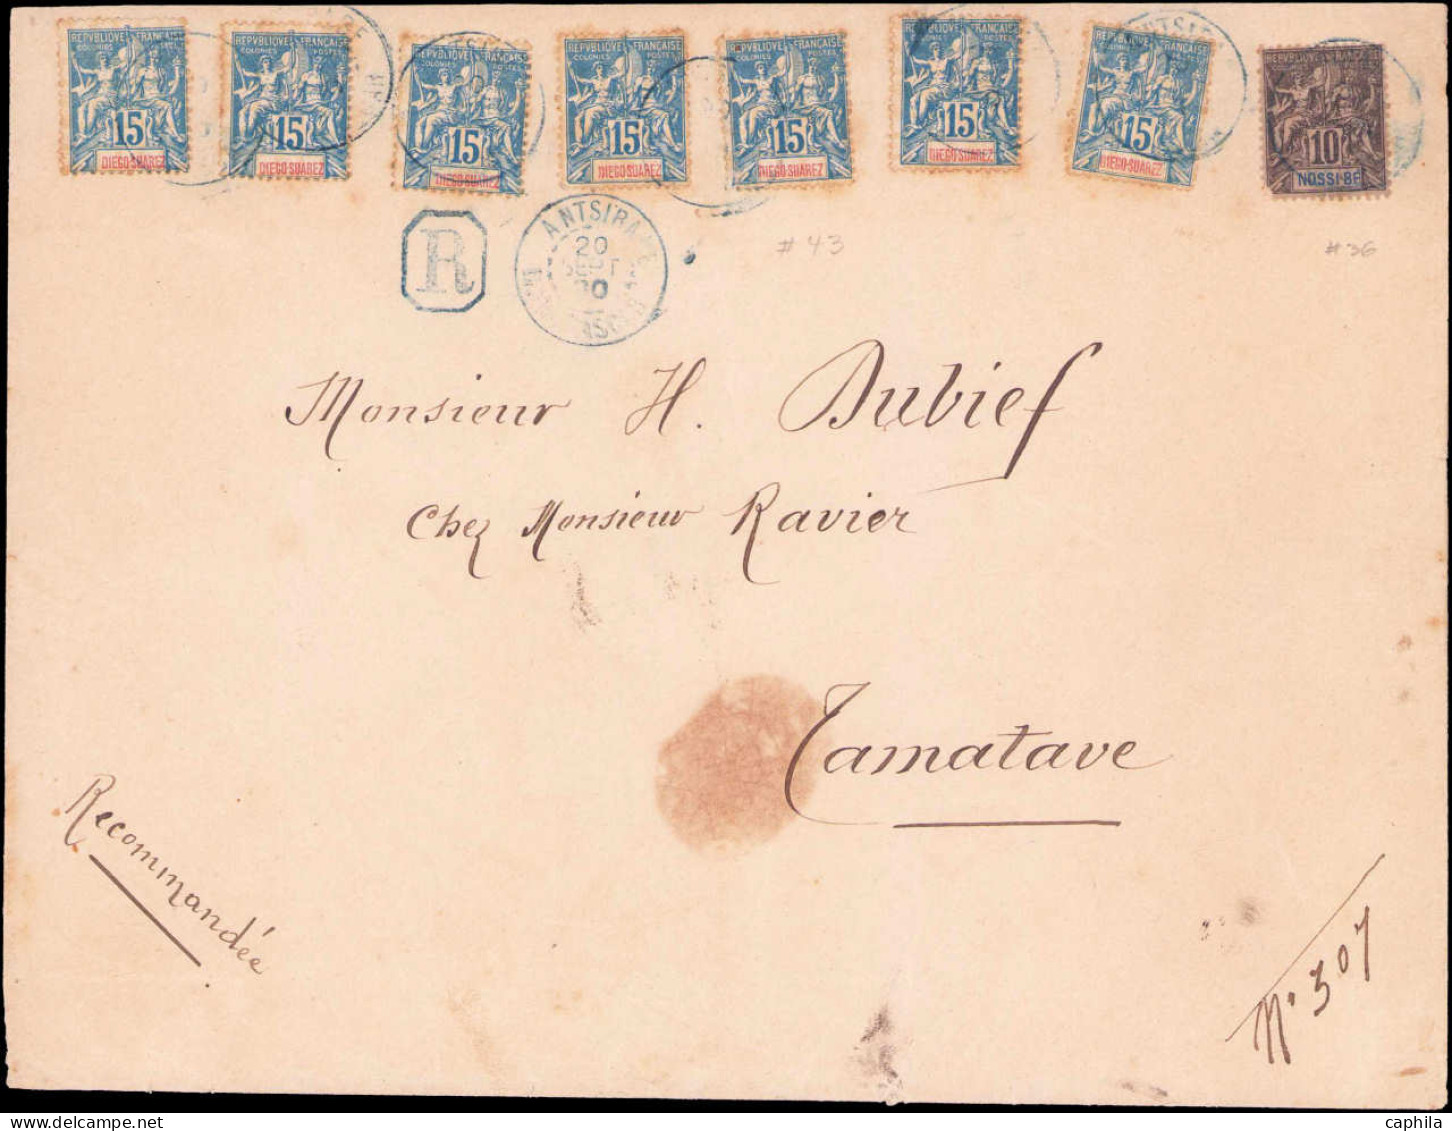 REPVBLIQVE FRANÇAISE
COLONIES POSTES
15
DIEGO-SUAREZ
REPVBLIQVE FRANÇAISE
COLONIES POSTES
15
DIEGO-SUAREZ
REPVBLIQVE FRANÇAISE
COLONIES POSTES
15
DIEGO-SUAREZ
REPVBLIQVE FRANÇAISE
COLONIES POSTES
15
DIEGO-SUAREZ
REPVBLIQVE FRANÇAISE
COLONIES POSTES
15
DIEGO-SUAREZ
REPVBLIQVE FRANÇAISE
COLONIES POSTES
15
DIEGO-SUAREZ
REPVBLIQVE FRANÇAISE
COLONIES POSTES
15
DIEGO-SUAREZ
REPVBLIQVE FRANÇAISE
COLONIES POSTES
10
NOSSI-BÉ
R
ANTSIRANE
20
SEPT
00
#43
#36
Monsieur H. Dubief
Chez Monsieur Ravier
Tamatave
Recommandée
N° 307
caphila